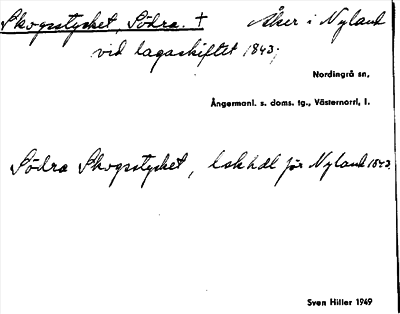 Skogsstycket, Södra. † Åker i Nyland
vid lagaskiftet 1843;
Nordingrå sn,
Ångermanl. s. doms. tg., Västernorrl. l.
Södra Skogsstycket, lskhdl för Nyland 1843.
Sven Hiller 1949